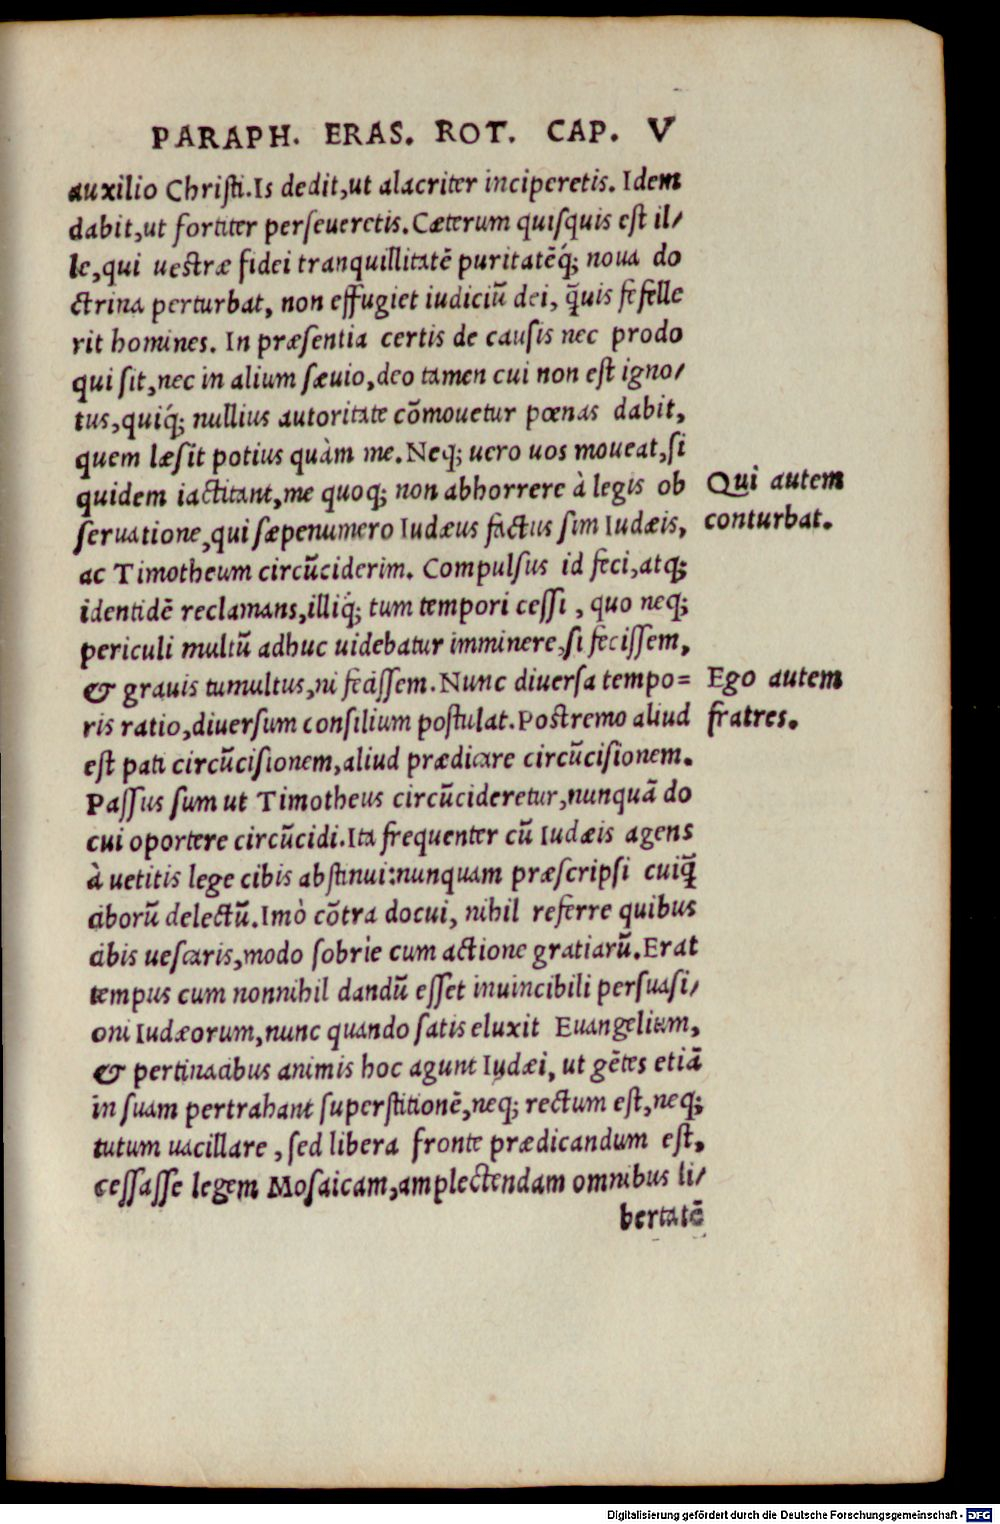 PARAPH. ERAS. ROT. CAP. V
auxilio Chriſti.Is dedit,ut alacriter inciperetis. Idem
dabit,ut fortiter perſeueretis.Cæterum quiſquis eſt il/
le,qui ueſtræ fidei tranquillitatē puritatēq́; noua do
ctrina perturbat, non effugiet iudiciū dei, q̄uis fefelle
rit homines. In præſentia certis de cauſis nec prodo
qui ſit,nec in alium ſæuio,deo tamen cui non eſt igno/
tus,quiq́; nullius autoritate cōmouetur pœnas dabit,
quem læſit potius quàm me.Neq; uero uos moueat,ſi
quidem iactitant,me quoq; non abhorrere à legis ob
ſeruatione,qui ſæpenumero Iudæus factus ſim Iudæis,
ac Timotheum circūciderim. Compulſus id feci,atq;
identidē reclamans,illiq́; tum tempori ceſſi, quo neq;
periculi multū adhuc uidebatur imminere,ſi feciſſem,
& grauis tumultus,ni feciſſem.Nunc diuerſa tempo=
ris ratio,diuerſum conſilium poſtulat.Poſtremo aliud
eſt pati circūciſionem,aliud prædicare circūciſionem.
Paſſus ſum ut Timotheus circūcideretur,nunquā do
cui oportere circūcidi.Ita frequenter cū Iudæis agens
à uetitis lege cibis abſtinui:nunquam præſcripſi cuiq̄
ciborū delectū.Imò cōtra docui, nihil referre quibus
cibis ueſcaris,modo ſobrie cum actione gratiarū.Erat
tempus cum nonnihil dandū eſſet inuincibili perſuaſi/
oni Iudæorum,nunc quando ſatis eluxit Euangelium,
& pertinacibus animis hoc agunt Iudæi, ut gētes etiā
in ſuam pertrahant ſuperſtitionē,neq; rectum eſt,neq;
tutum uacillare, ſed libera fronte prædicandum eſt,
ceſſaſſe legem Moſaicam,amplectendam omnibus li/
bertatē
Qui autem
conturbat.
Ego autem
fratres.
Digitalisierung gefördert durch die Deutsche Forschungsgemeinschaft - DFG